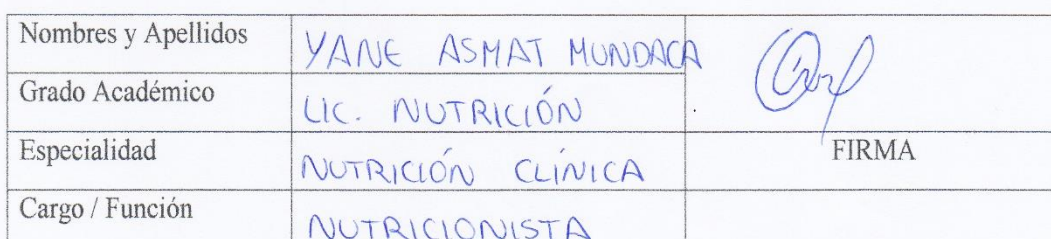 Nombres y Apellidos YANE ASMAT MUNDACA
Grado Académico LIC. NUTRICIÓN
Especialidad NUTRICIÓN CLÍNICA FIRMA
Cargo / Función NUTRICIONISTA